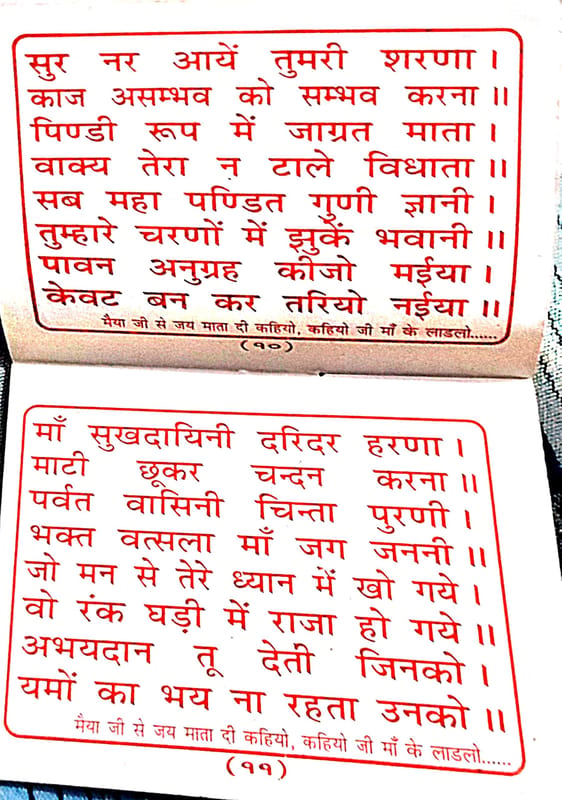 सुर नर आयें तुमरी शरणा ।
काज असम्भव को सम्भव करना ॥
पिण्डी रूप में जाग्रत माता ।
वाक्य तेरा न टाले विधाता ॥
सब महा पण्डित गुणी ज्ञानी ।
तुम्हारे चरणों में झुकें भवानी ॥
पावन अनुग्रह कीजो मईया ।
केवट बन कर तरियो नईया ॥
मैया जी से जय माता दी कहियो, कहियो जी माँ के लाडलो......
(१०)
माँ सुखदायिनी दरिदर हरणा ।
माटी छूकर चन्दन करना ॥
पर्वत वासिनी चिन्ता पुरणी ।
भक्त वत्सला माँ जग जननी ॥
जो मन से तेरे ध्यान में खो गये ।
वो रंक घड़ी में राजा हो गये ॥
अभयदान तू देती जिनको ।
यमों का भय ना रहता उनको ॥
मैया जी से जय माता दी कहियो, कहियो जी माँ के लाडलो......
(११)